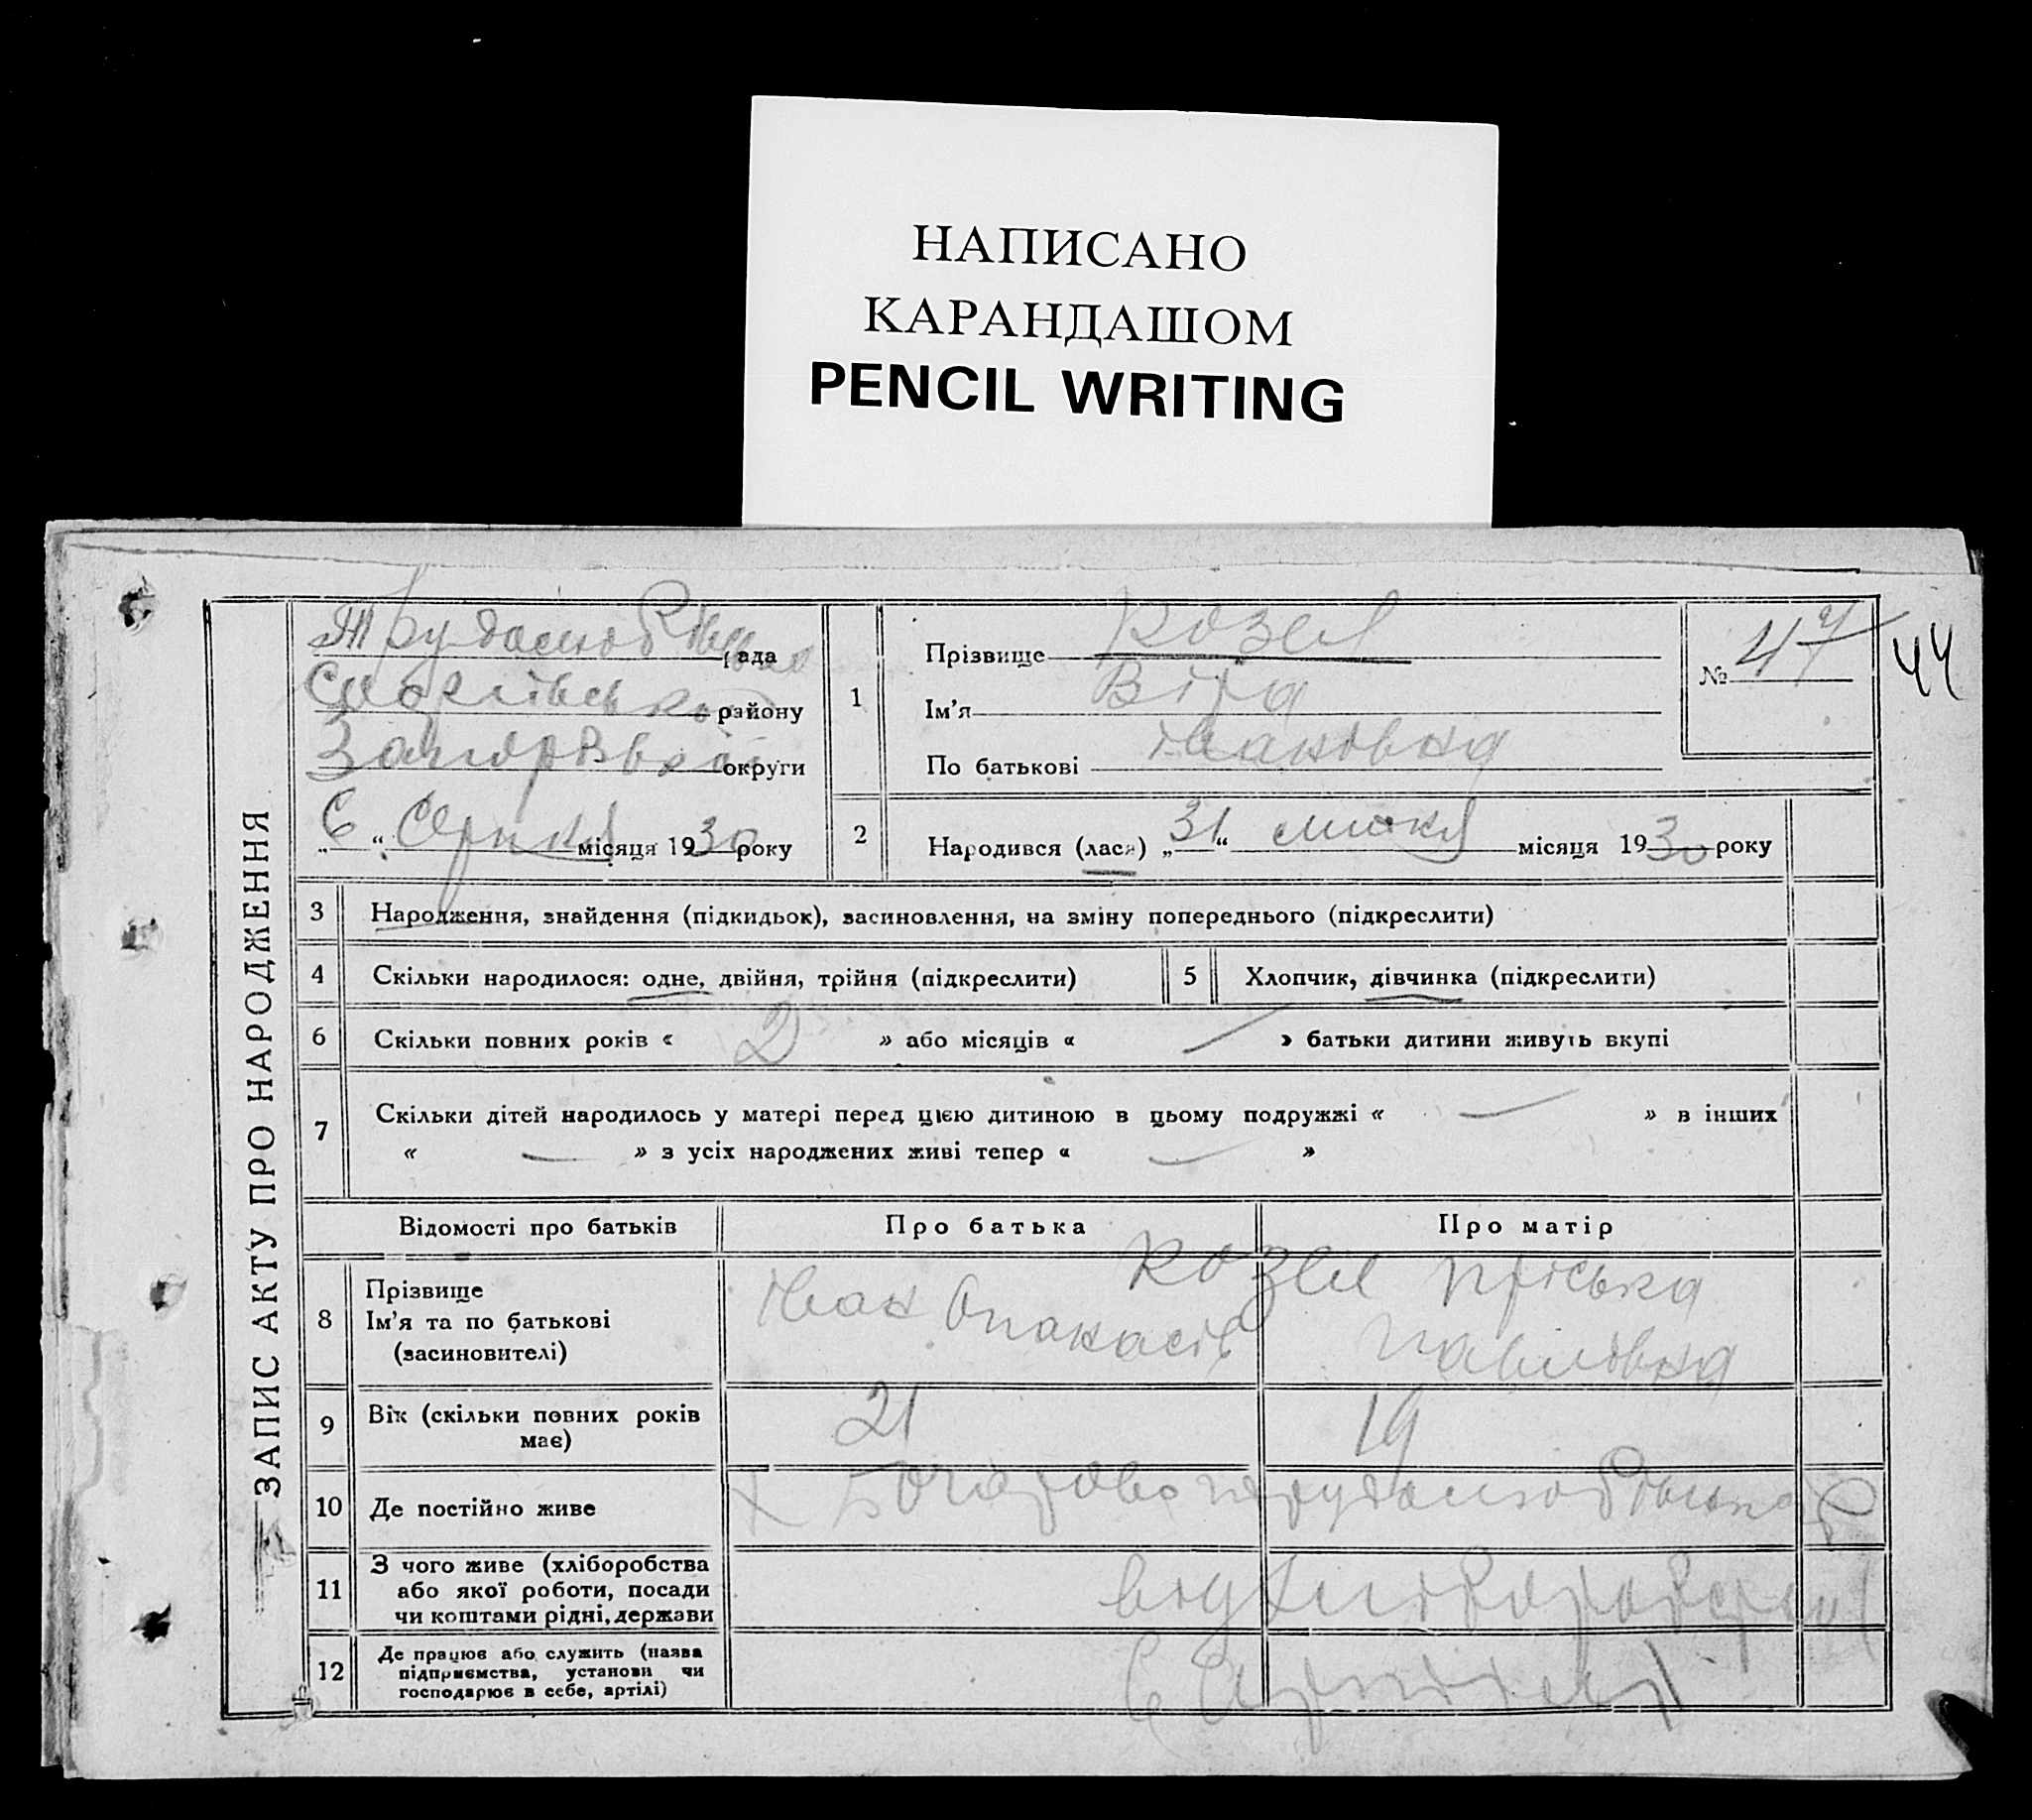 НАПИСАНО
КАРАНДАШОМ
PENCIL WRITING
ЗАПИС АКТУ ПРО НАРОДЖЕННЯ
рада
району
округи
„6“ Серпня місяця 1930 року
1
Прізвище Козел
Ім’я Віра
По батькові Івановна
№ 47
44
2
Народився (лася) „31“ липня місяця 1930 року
3 Народження, знайдення (підкидьок), засиновлення, на зміну попереднього (підкреслити)
4 Скільки народилося: одне, двійня, трійня (підкреслити)
5 Хлопчик, дівчинка (підкреслити)
6 Скільки повних років « 2 » або місяців « — » батьки дитини живуть вкупі
7 Скільки дітей народилось у матері перед цією дитиною в цьому подружжі « — » в інших
« — » з усіх народжених живі тепер « — »
Відомості про батьків
Про батька
Про матір
8 Прізвище
Ім’я та по батькові
(засиновителі)
Козел
Іван Опанасів
Пріська
Павловна
9 Вік (скільки повних років
має)
21
19
10 Де постійно живе
11 З чого живе (хліборобства
або якої роботи, посади
чи коштами рідні, держави
12 Де працює або служить (назва
підприємства, установи чи
господарює в себе, артілі)